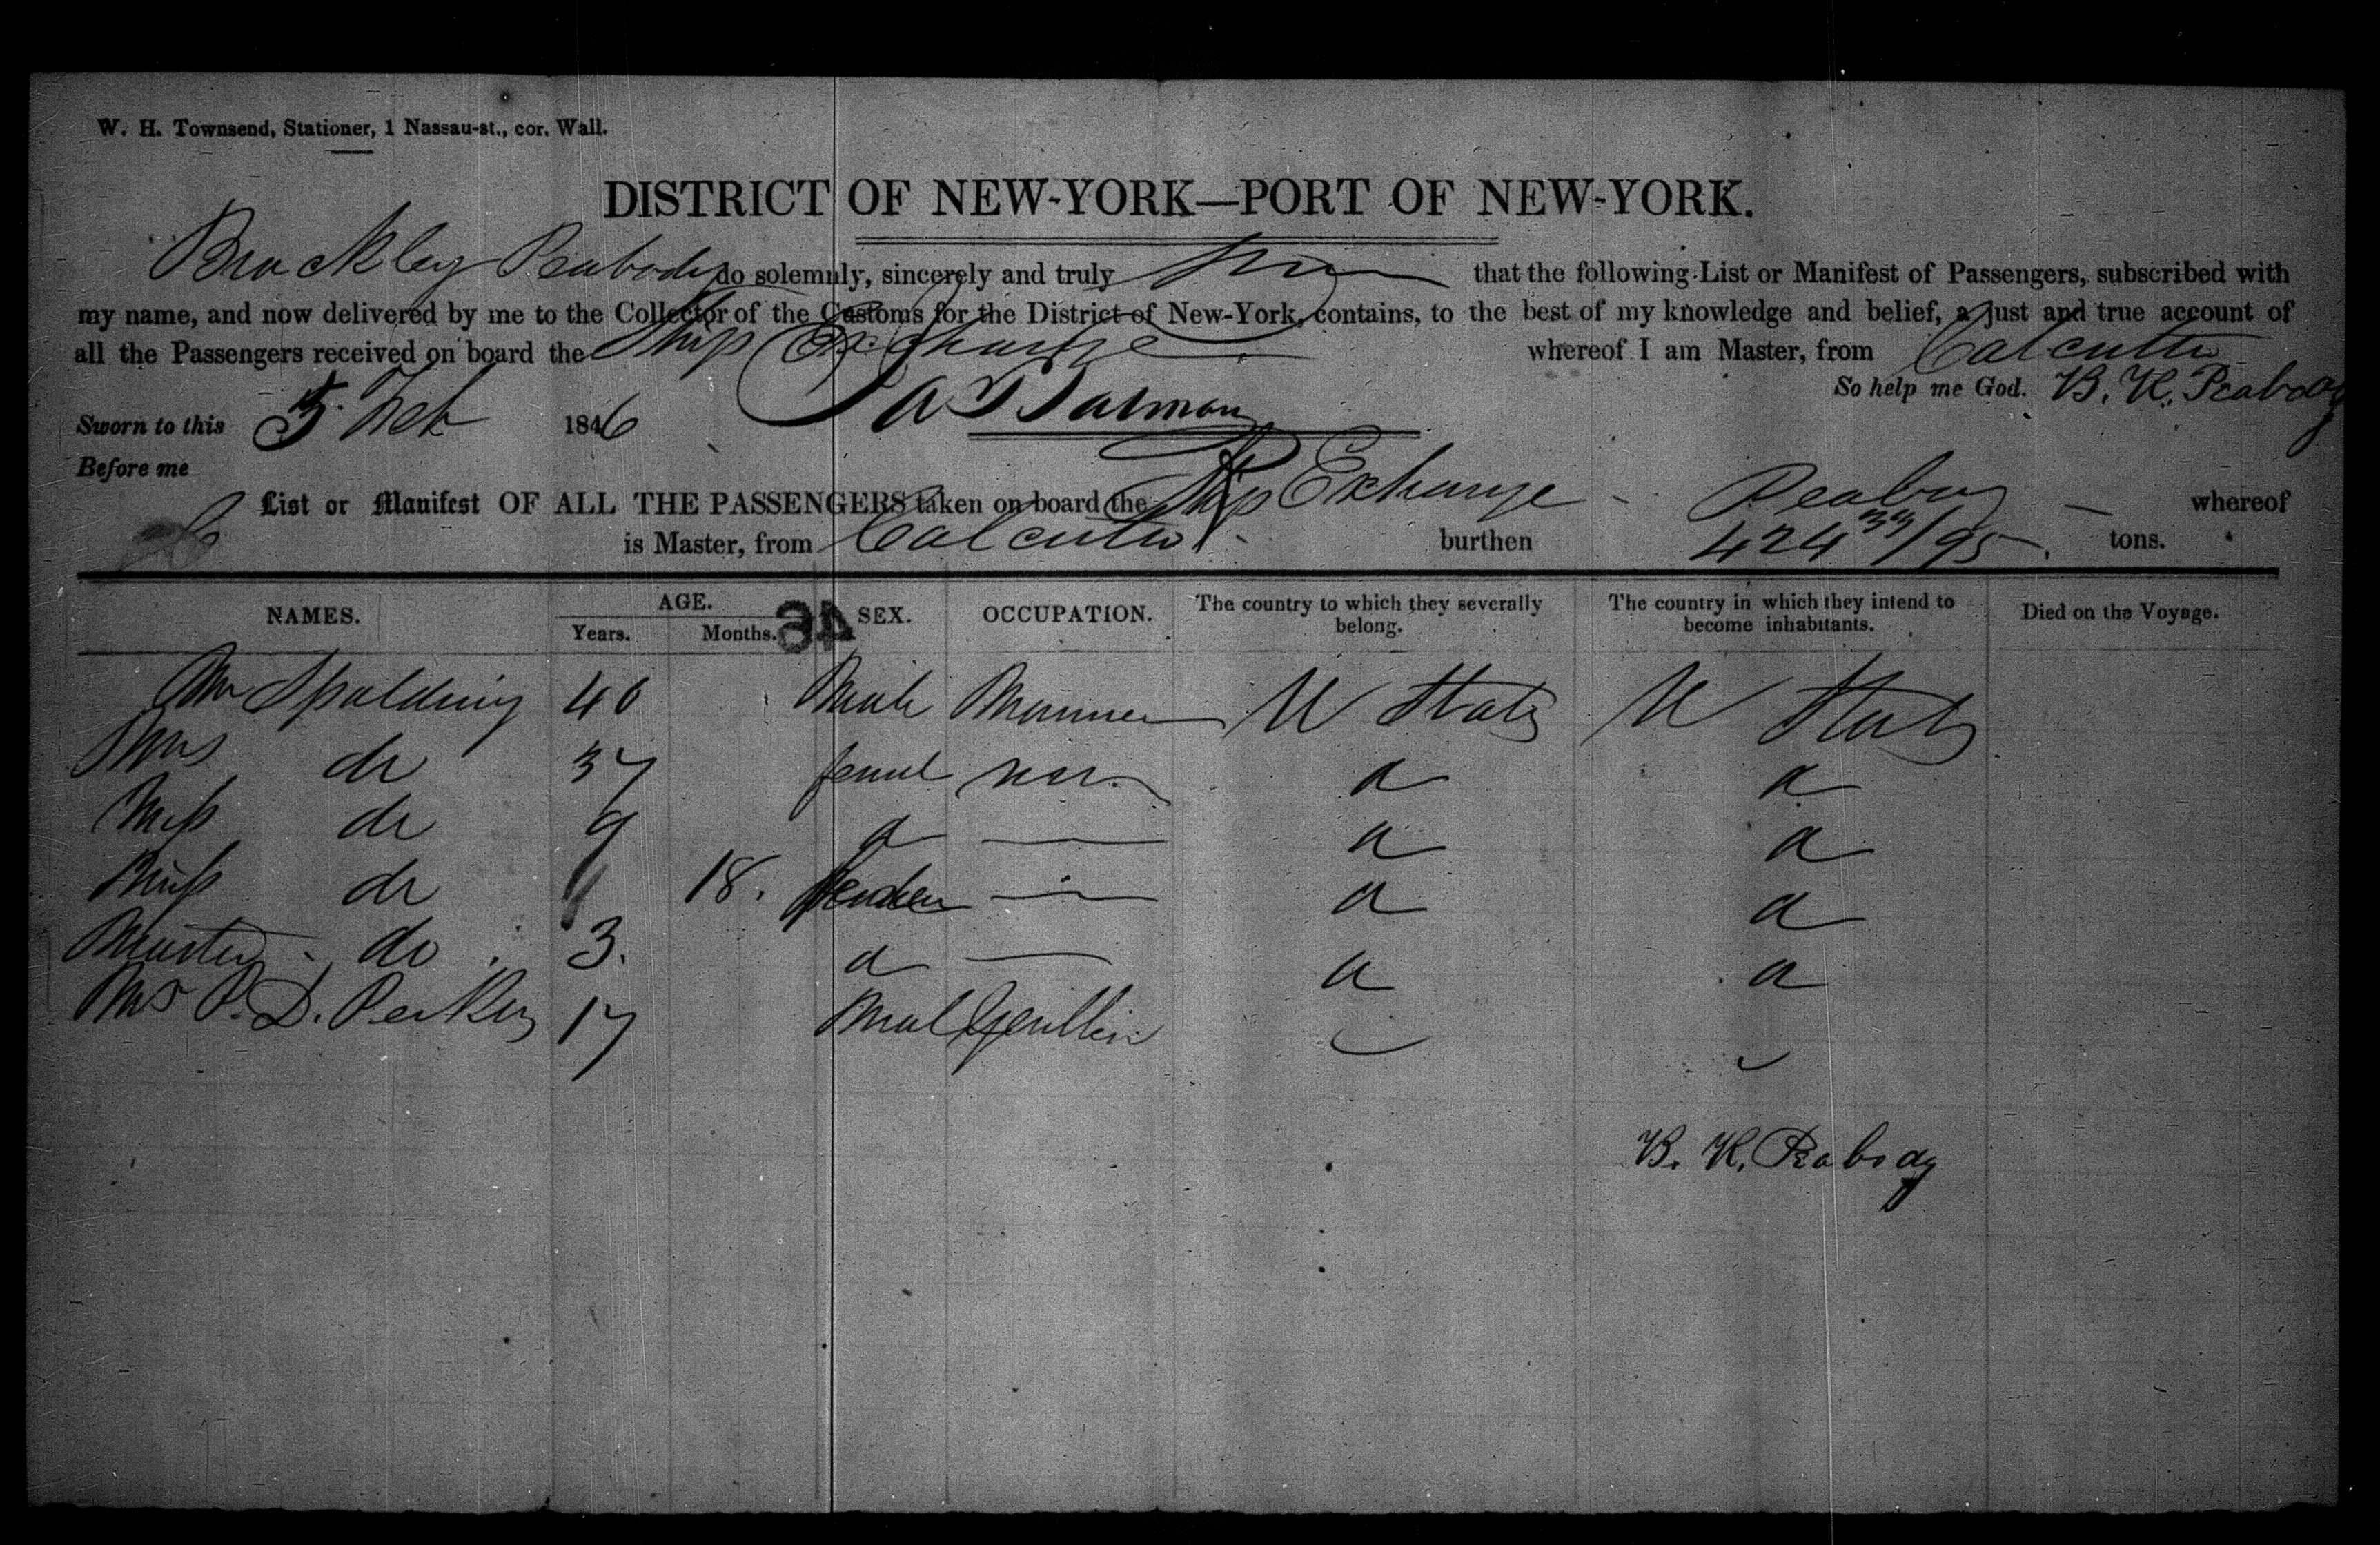 W. H. Townsend, Stationer, 1 Nassau-st., cor. Wall.
DISTRICT OF NEW-YORK—PORT OF NEW-YORK.
Brackley Peabody do solemnly, sincerely and truly that the following List or Manifest of Passengers, subscribed with
my name, and now delivered by me to the Collector of the Customs for the District of New-York, contains, to the best of my knowledge and belief, a just and true account of
all the Passengers received on board the Ship Exchange whereof I am Master, from Calcutta
So help me God. B. K. Peabody
Sworn to this 5 Feb 1846
Before me
List or Manifest OF ALL THE PASSENGERS taken on board the Ship Exchange Peabody whereof
is Master, from Calcutta burthen 424 33/95 tons.
NAMES. AGE. SEX. OCCUPATION. The country to which they severally belong. The country in which they intend to become inhabitants. Died on the Voyage.
Years. Months.
Mr Spalding 40 Male U States U States
Mrs do 37 femal a a
Miss do 9 a — a a
Miss do 18. — a a
Master do 3. a — a a
P. D. 17 Mal
B. K. Peabody